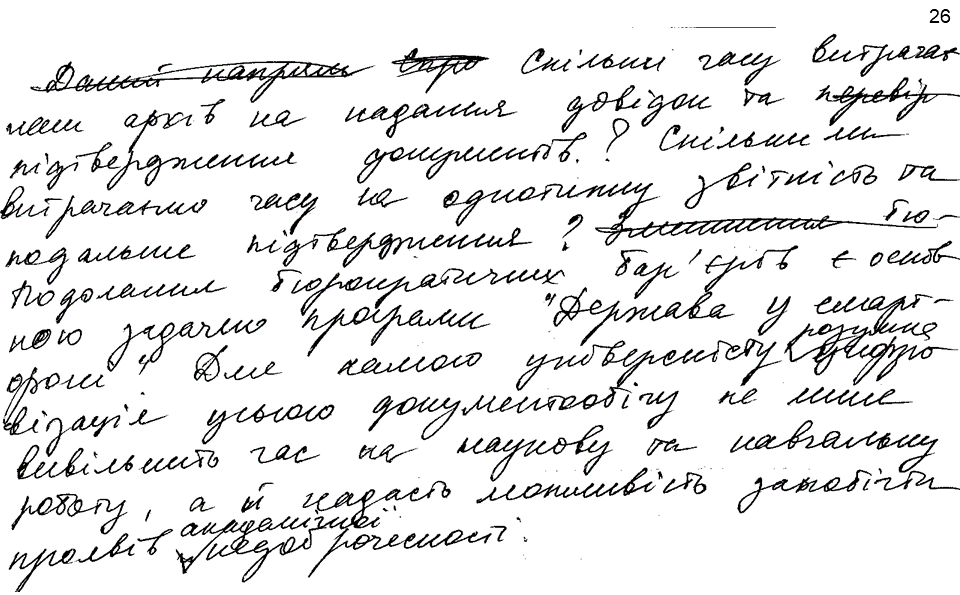 26
Даний напрям Спро Скільки часу витрачає
наш архів на надання довідок та перевір
підтвердження документів.? Скільки ми
витрачаємо часу на однотипну звітність та
подальше підтвердження? Зменшення бю-
Подолання бюрократичних бар'єрів є основ
ною задачею програми "Держава у смарт-
фоні". Для нашого університету розумна цифро
візація усього документообігу не лише
вивільнить час на наукову та навчальну
роботу, а й надасть можливість запобігти
проявів академічної недоброчесності.